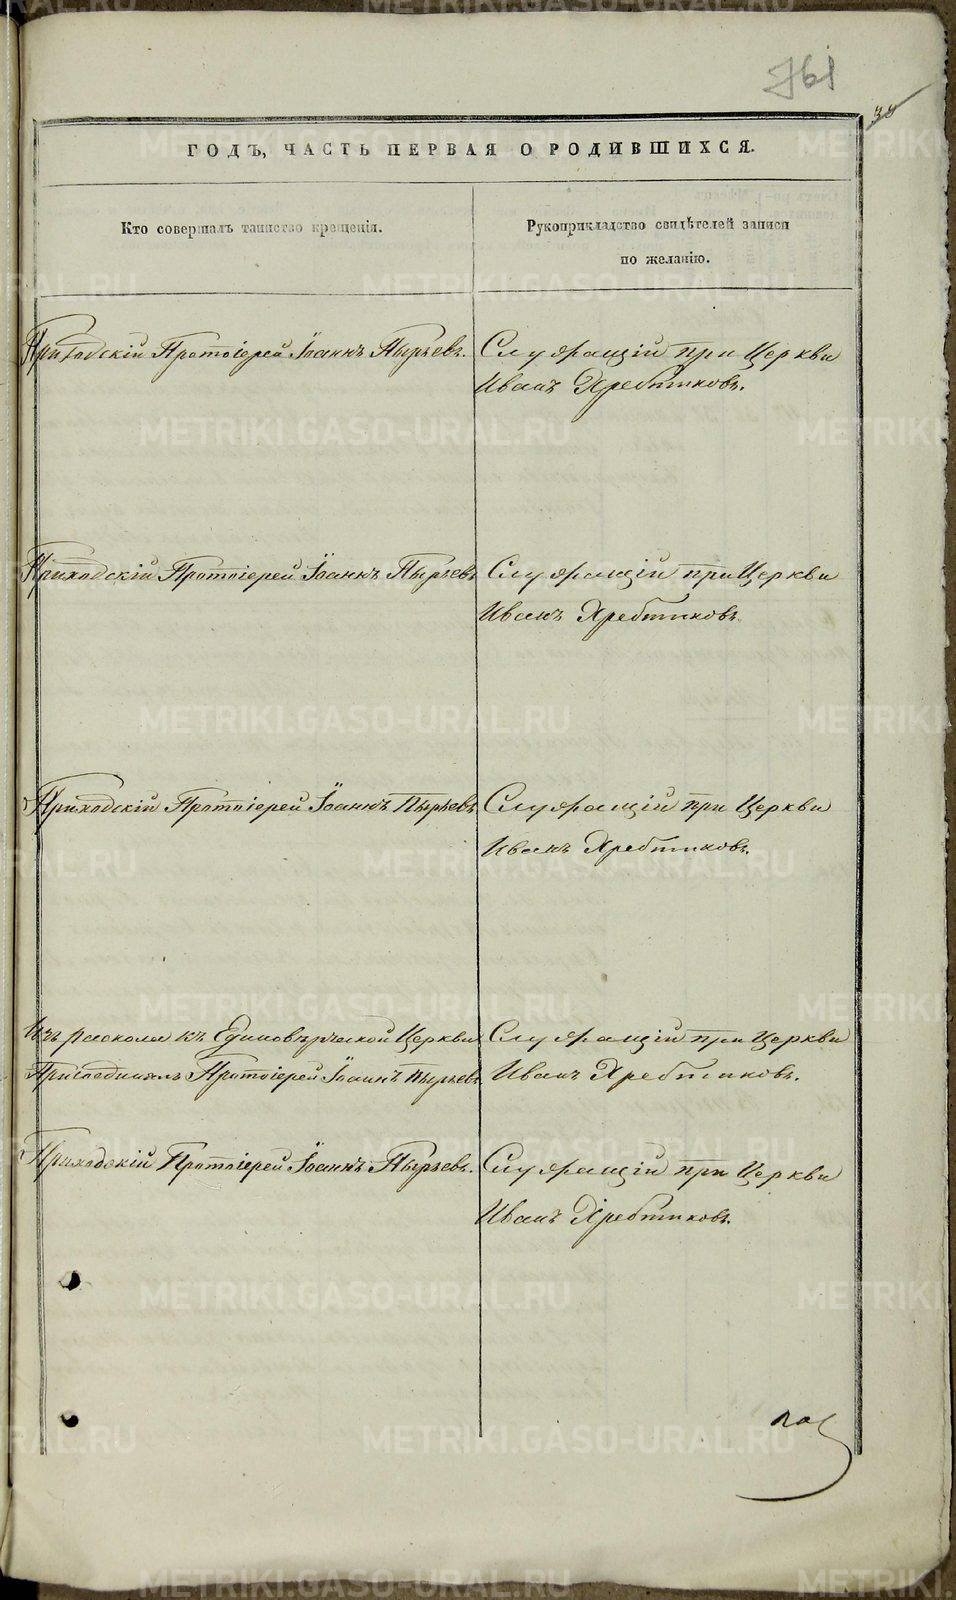 761
38
ГОДЪ, ЧАСТЬ ПЕРВАЯ О РОДИВШИХСЯ.
Кто совершалъ таинство крещенія.
Рукоприкладство свидѣтелей записи
по желанію.
Приходскій Протоіерей Іоаннъ Пырьевъ.
Служащій при Церкви
Иванъ Хребтиковъ.
Приходскій Протоіерей Іоаннъ Пырьевъ
Служащій при Церкви
Иванъ Хребтиковъ.
Приходскій Протоіерей Іоаннъ Пырьевъ
Служащій при Церкви
Иванъ Хребтиковъ.
Изъ раскола къ Единовѣрческой Церкви
Присоединялъ Протоіерей Іоаннъ Пырьевъ
Служащій при Церкви
Иванъ Хребтиковъ.
Приходскій Протоіерей Іоаннъ Пырьевъ.
Служащій при Церкви
Иванъ Хребтиковъ.
METRIKI.GASO-URAL.RU